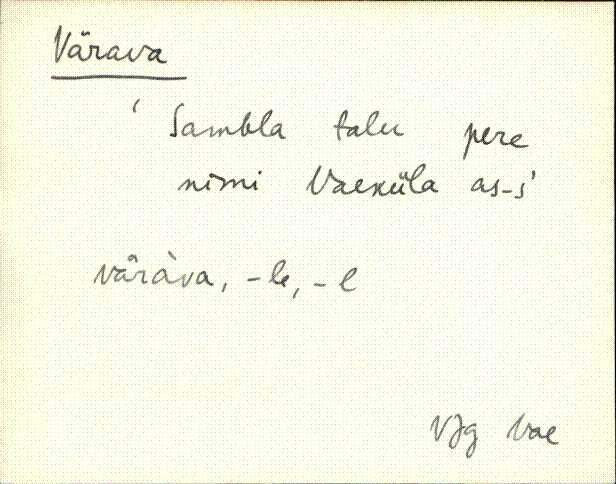 Värava
‘ Sambla talu pere
nimi Vaeküla as-s’
väràva, -le, -l
VJg Vae